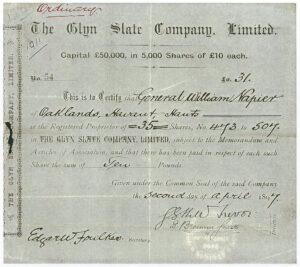 Ordinary
The Glyn Slate Company, Limited.
Capital £50,000, in 5,000 Shares of £10 each.
No. 54
No. 31.
This is to Certify that General William Napier
of Oaklands, Havant, Hants
is the Registered Proprietor of =35= Shares, No 473 to 507
in THE GLYN SLATE COMPANY, LIMITED, subject to the Memorandum and
Articles of Association, and that there has been paid in respect of each such
Share the sum of Ten Pounds.
Given under the Common Seal of the said Company
the second day of April 18
Trevor
Edgar W Foulkes Secretary.
COMPANY, LIMITED.